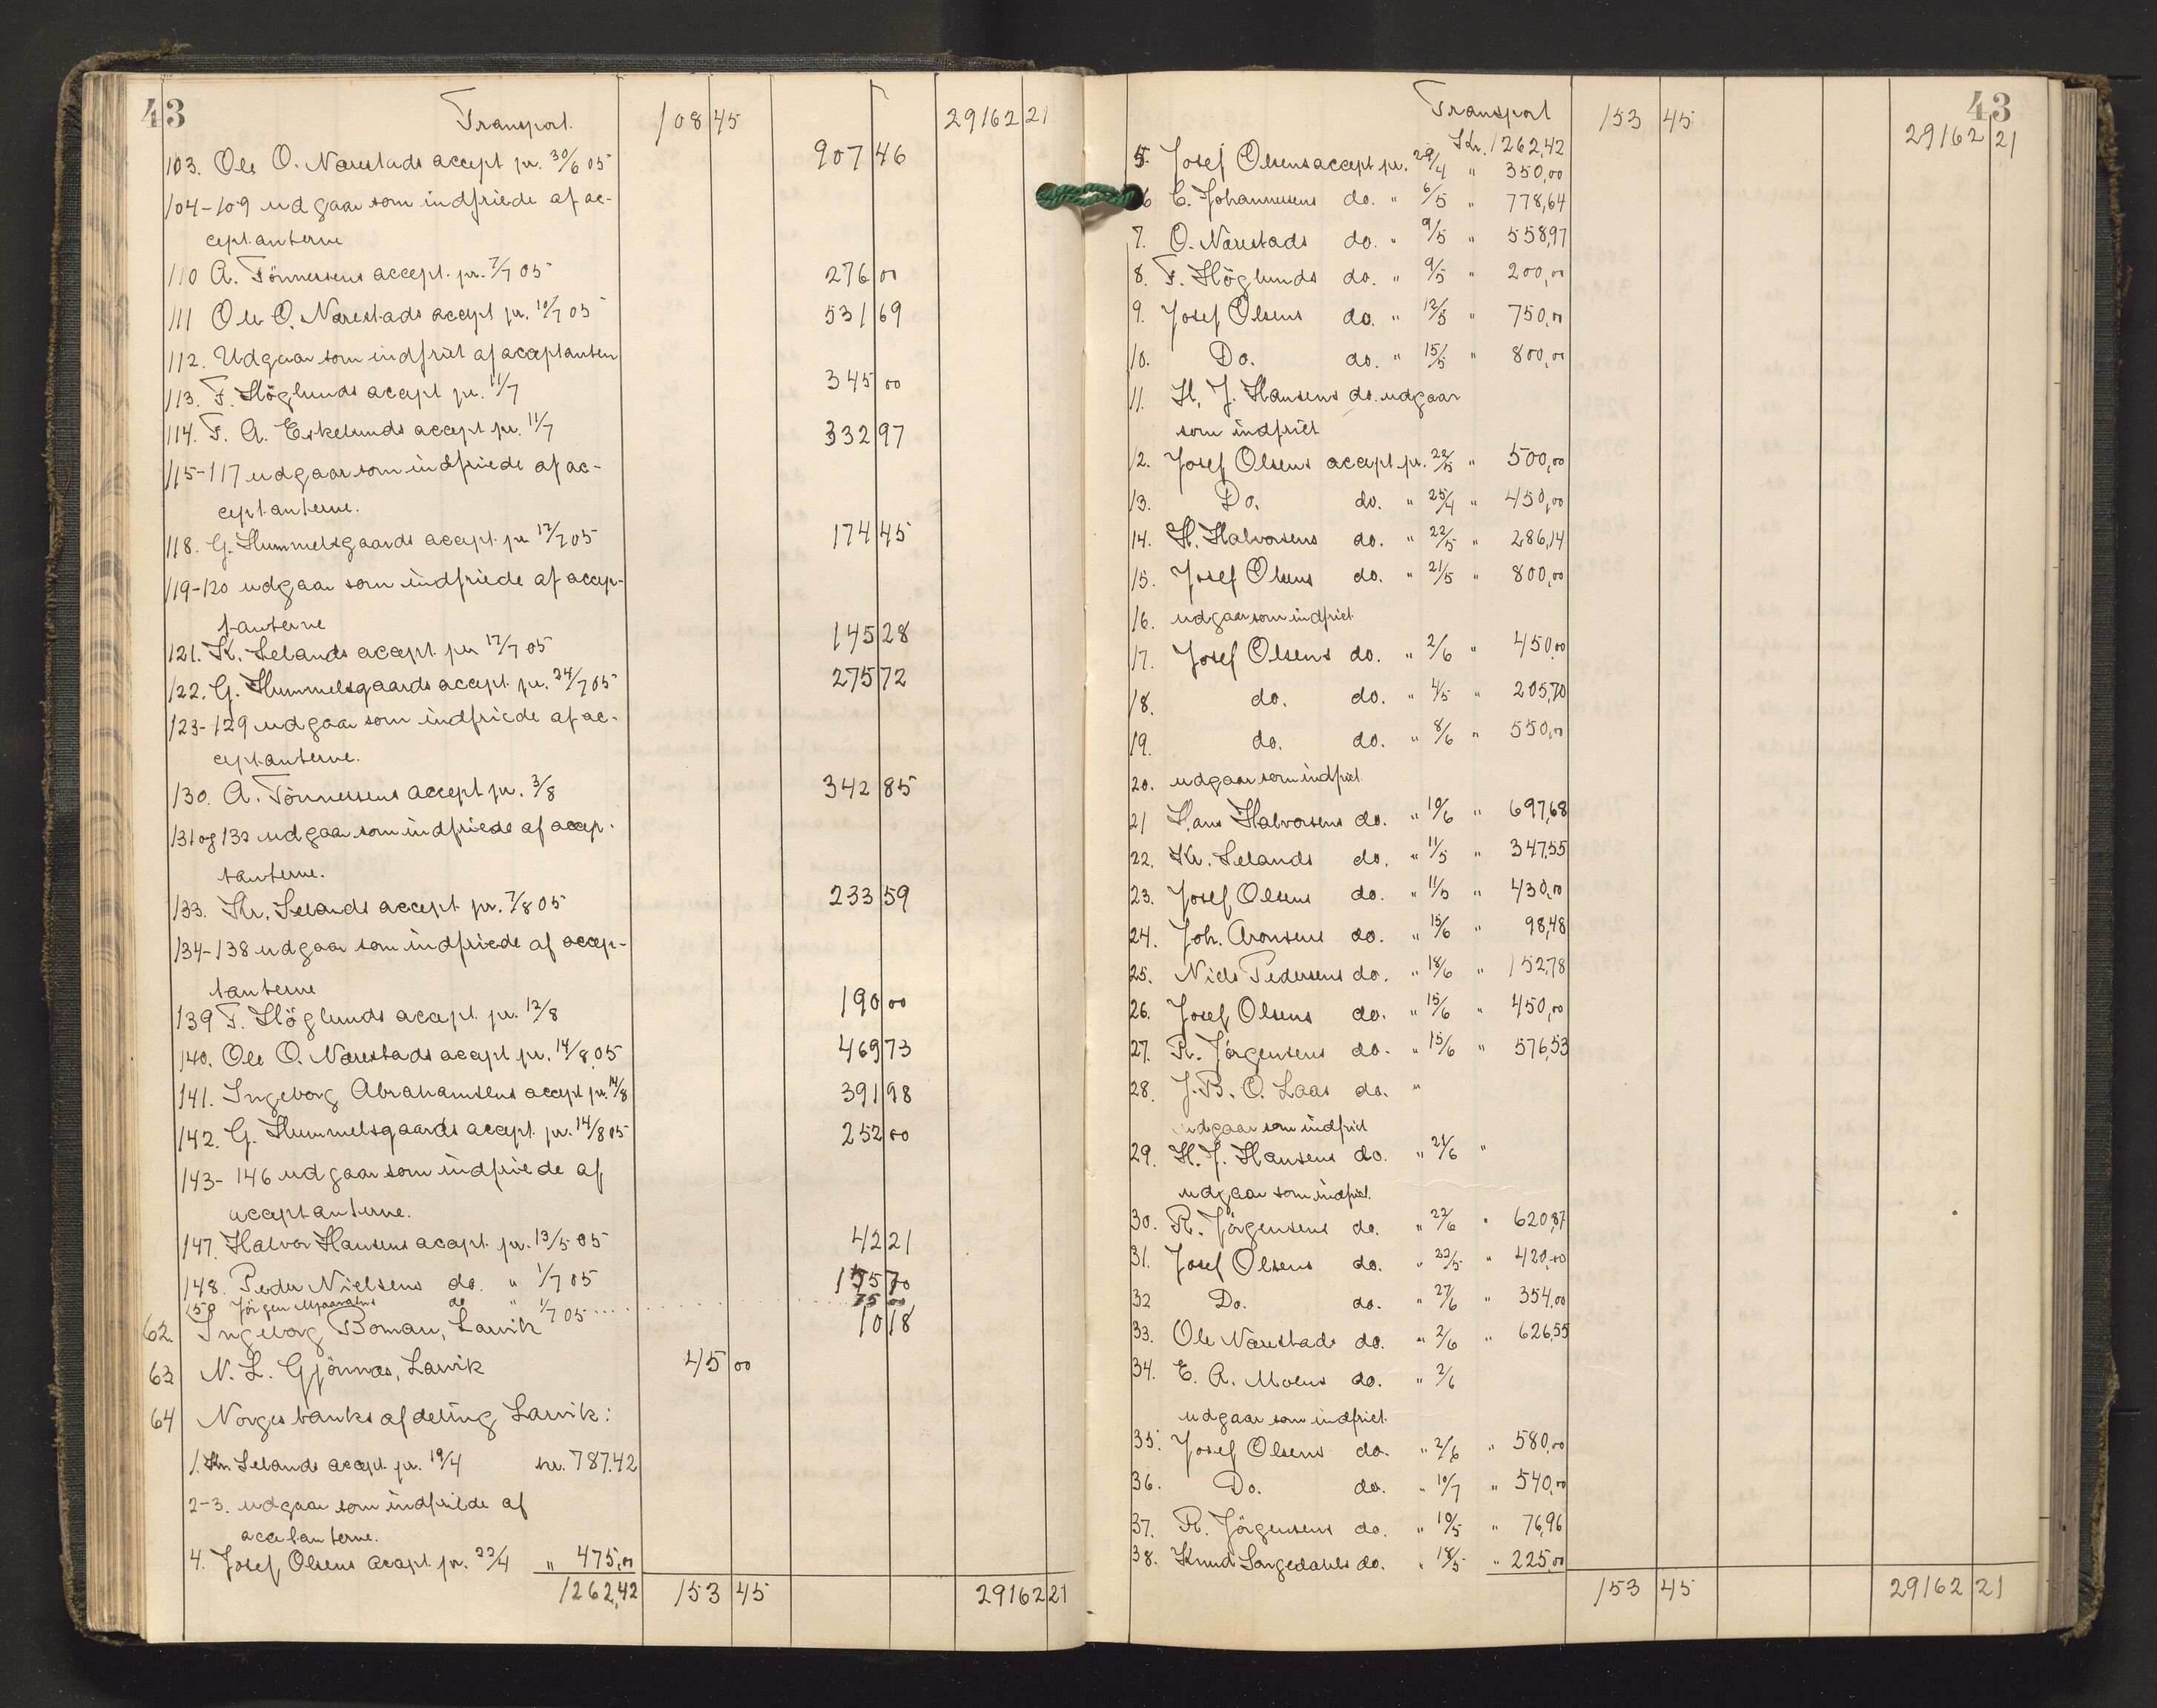 43
Transport. 108 45 29162 21
103. Ole O. Narestads accept pr. 30/6 05 907 46
104-109 udgaar som indfriede af ac-
ceptanterne
110 A. Tönnessens accept. pr. 7/7 05 276 00
111 Ole O. Narestads accept pr. 10/7 05 531 69
112. Udgaar som indfriet af acceptanten
113. F. Höglunds accept pr. 11/7 345 00
114. F. A. Eskelunds accept pr. 11/7 332 97
115-117 udgaar som indfriede af ac-
ceptanterne.
118. G. Hummelsgaards accept. pr 17/7 05 174 45
119-120 udgaar som indfriede af accep-
tanterne
121. K. Lelands accept pr 17/7 05 145 28
122. G. Hummelsgaards accept. pr. 24/7 05 275 72
123-129 udgaar som indfriede af ac-
ceptanterne.
130. A. Tönnessens accept pr. 3/8 342 85
131 og 132 udgaar som indfriede af accep-
tanterne.
133. Kr. Lelands accept pr. 7/8 05 233 59
134-138 udgaar som indfriede af accep-
tanterne
139 F. Höglunds accept. pr. 12/8 190 00
140. Ole O. Narestads accept pr. 14/8 05 469 73
141. Ingeborg Abrahamsens accept pr. 14/8 391 98
142. G. Hummelsgaards accept. pr. 14/8 05 252 00
143-146 udgaar som indfriede af
acceptanterne.
147. Halvor Hansens accept. pr. 13/5 05 42 21
148. Peder Nielsens do. " 1/7 05
150 Jörgen do " 1/7 05 75 00
62. Ingeborg Boman, Larvik 10 18
63 N. L. Gjönnæs, Larvik 45 00
64 Norges banks afdeling Larvik:
1. Kr. Lelands accept. pr. 19/4 kr. 787.42
2-3. udgaar som indfriede af
acceptanterne.
4. Josef Olsens accept. pr. 22/4 " 475,00
1262,42 153 45 29162 21
43
Transport 153 45 29162 21
Kr. 1262,42
5. Josef Olsens accept pr. 29/4 " 350,00
6 C. Johannesens do. " 6/5 " 778,64
7. O. Narestads do. " 9/5 " 558,97
8. F. Höglunds do. " 9/5 " 200,00
9. Josef Olsens do. " 12/5 " 750,00
10. Do. do. " 15/5 " 800,00
11. H. J. Hansens do. udgaar
som indfriet
12. Josef Olsens accept. pr. 22/5 " 500,00
13. Do. do. " 25/4 " 450,00
14. H. Halvorsens do. " 22/5 " 286,14
15. Josef Olsens do. " 21/5 " 800,00
16. udgaar som indfriet
17. Josef Olsens do. " 2/6 " 450,00
18. do. do. " 4/5 " 205,70
19. do. do. " 8/6 " 550,00
20. udgaar som indfriet.
21 Hans Halvorsens do. " 10/6 " 697,68
22. Kr. Lelands do. " 11/5 " 347,55
23. Josef Olsens do. " 11/5 " 430,00
24. Joh. Aronsens do. " 15/6 " 98,48
25. Niels Pedersens do. " 18/6 " 152,78
26. Josef Olsens do. " 15/6 " 450,00
27. R. Jörgensens do. " 15/6 " 576,53
28. J. B. O. Laas do. "
udgaar som indfriet
29. H. J. Hansens do. " 21/6 "
udgaar som indfriet.
30. R. Jörgensens do. " 22/6 " 620,87
31. Josef Olsens do. " 22/5 " 420,00
32 Do. do. " 27/6 " 354,00
33. Ole Narestads do. " 2/6 " 626,55
34. E. A. Moens do. " 2/6
udgaar som indfriet.
35. Josef Olsens do. " 2/6 " 580,00
36. Do. do. " 10/7 " 540,00
37. R. Jörgensens do. " 10/5 " 76,96
38. Knud Langedahls do. " 18/5 " 225,00
153 45 29162 21